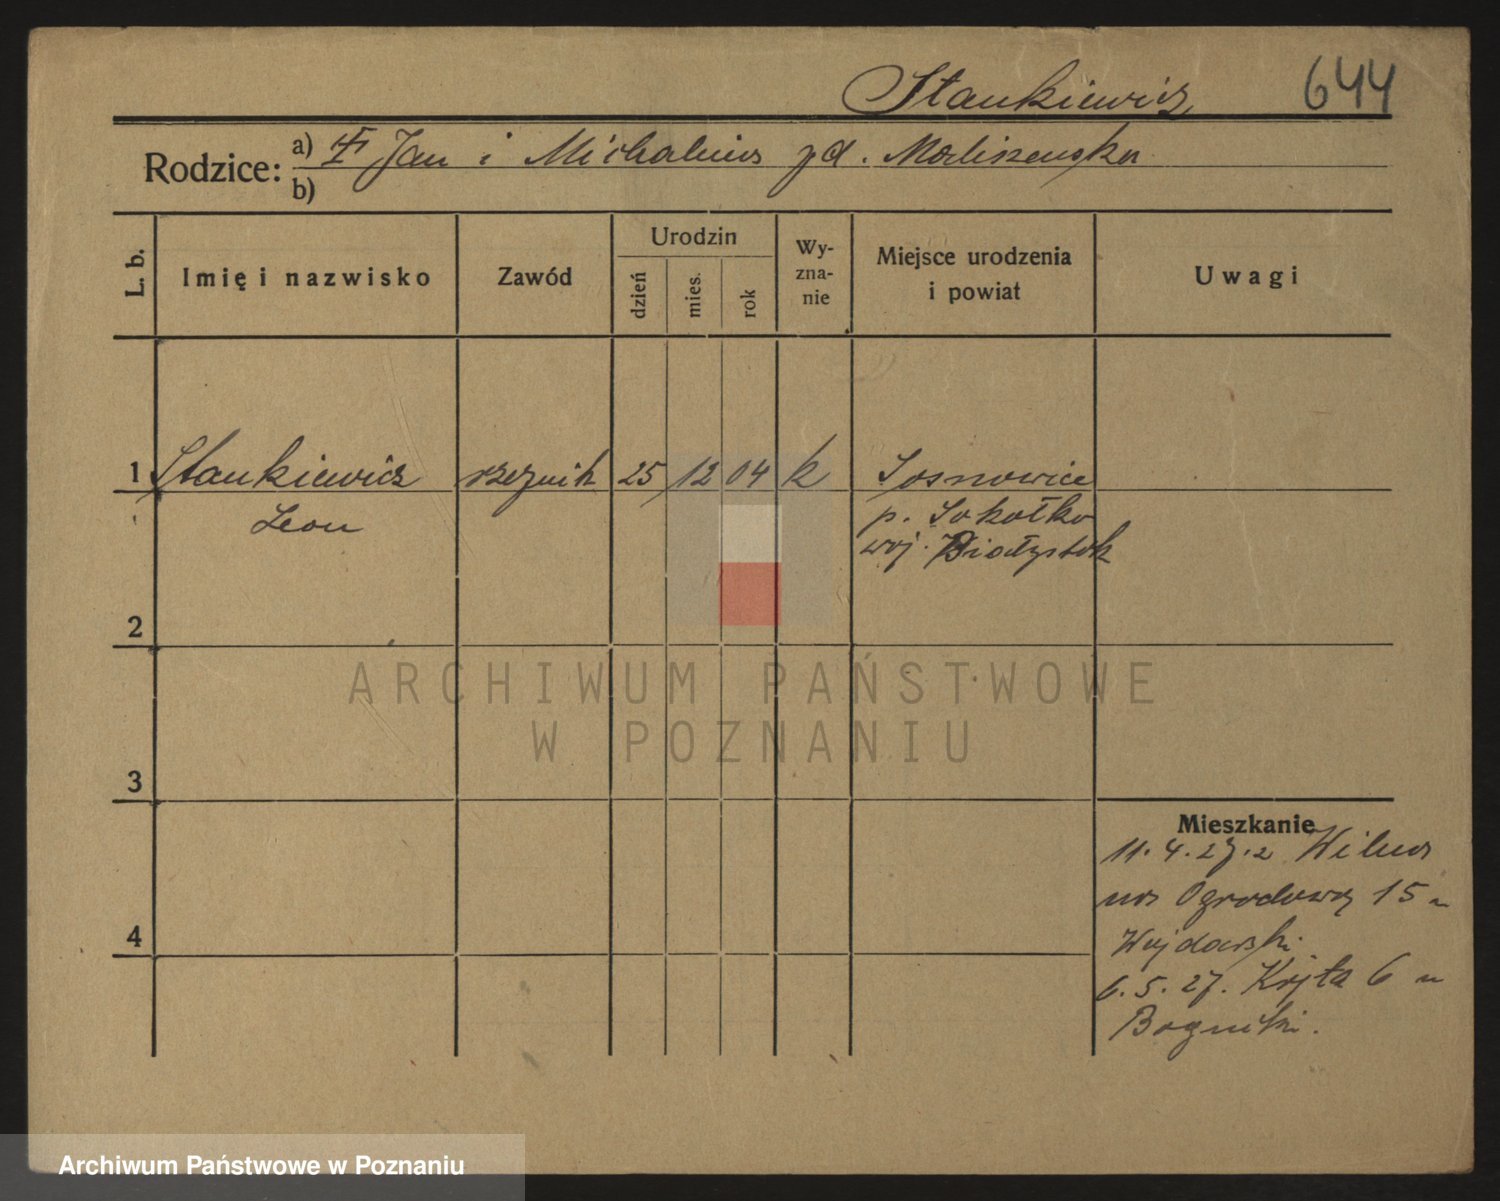 Stankiewicz 644
Rodzice: a) Jan i Michalina zd. Maliszewska
b)
L. b.
Imię i nazwisko
Zawód
Urodzin
dzień
mies.
rok
Wy-
zna-
nie
Miejsce urodzenia
i powiat
Uwagi
1 Stankiewicz rzeźnik 25 12 04 k Sosnowice
Leon p. Sokołka
woj. Białystok
2
ARCHIWUM PAŃSTWOWE
W POZNANIU
3
Mieszkanie
11.4.27. z Wilna
na Ogrodową 15 u
6.5.27. Kręta 6 u
4
Archiwum Państwowe w Poznaniu